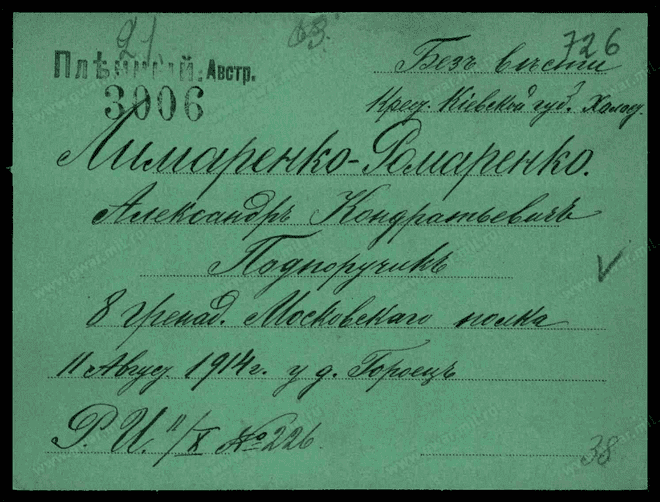 21 63. 726
Плѣнный: Австр. Безъ вѣсти
3006
Крест. Кіевской губ. Холод.
Лимаренко-Ромаренко.
Александръ Кондратьевичъ
Подпоручикъ
8 гренад. Московскаго полка
11 Август. 1914 г. у д. Гороецъ
Р. И. 11/X № 226.
38